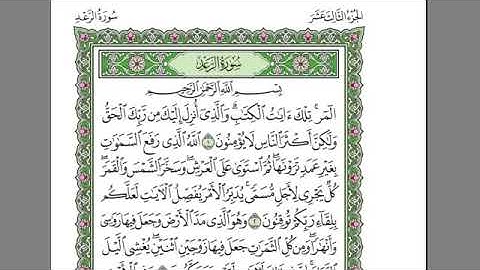 الجزء الثالث عشر
سورة الرعد
سورة الرعد
بسم الله الرحمن الرحيم
الٓمٓر ۚ تِلْكَ ءَايَٰتُ ٱلْكِتَٰبِ ۗ وَٱلَّذِىٓ أُنزِلَ إِلَيْكَ مِن رَّبِّكَ ٱلْحَقُّ
وَلَٰكِنَّ أَكْثَرَ ٱلنَّاسِ لَا يُؤْمِنُونَ ١ ٱللَّهُ ٱلَّذِى رَفَعَ ٱلسَّمَٰوَٰتِ
بِغَيْرِ عَمَدٍ تَرَوْنَهَا ۖ ثُمَّ ٱسْتَوَىٰ عَلَى ٱلْعَرْشِ ۖ وَسَخَّرَ ٱلشَّمْسَ وَٱلْقَمَرَ ۖ
كُلٌّ يَجْرِى لِأَجَلٍ مُّسَمًّى ۚ يُدَبِّرُ ٱلْأَمْرَ يُفَصِّلُ ٱلْءَايَٰتِ لَعَلَّكُم
بِلِقَآءِ رَبِّكُمْ تُوقِنُونَ ٢ وَهُوَ ٱلَّذِى مَدَّ ٱلْأَرْضَ وَجَعَلَ فِيهَا رَوَٰسِىَ
وَأَنْهَٰرًا ۖ وَمِن كُلِّ ٱلثَّمَرَٰتِ جَعَلَ فِيهَا زَوْجَيْنِ ٱثْنَيْنِ ۖ يُغْشِى ٱلَّيْلَ